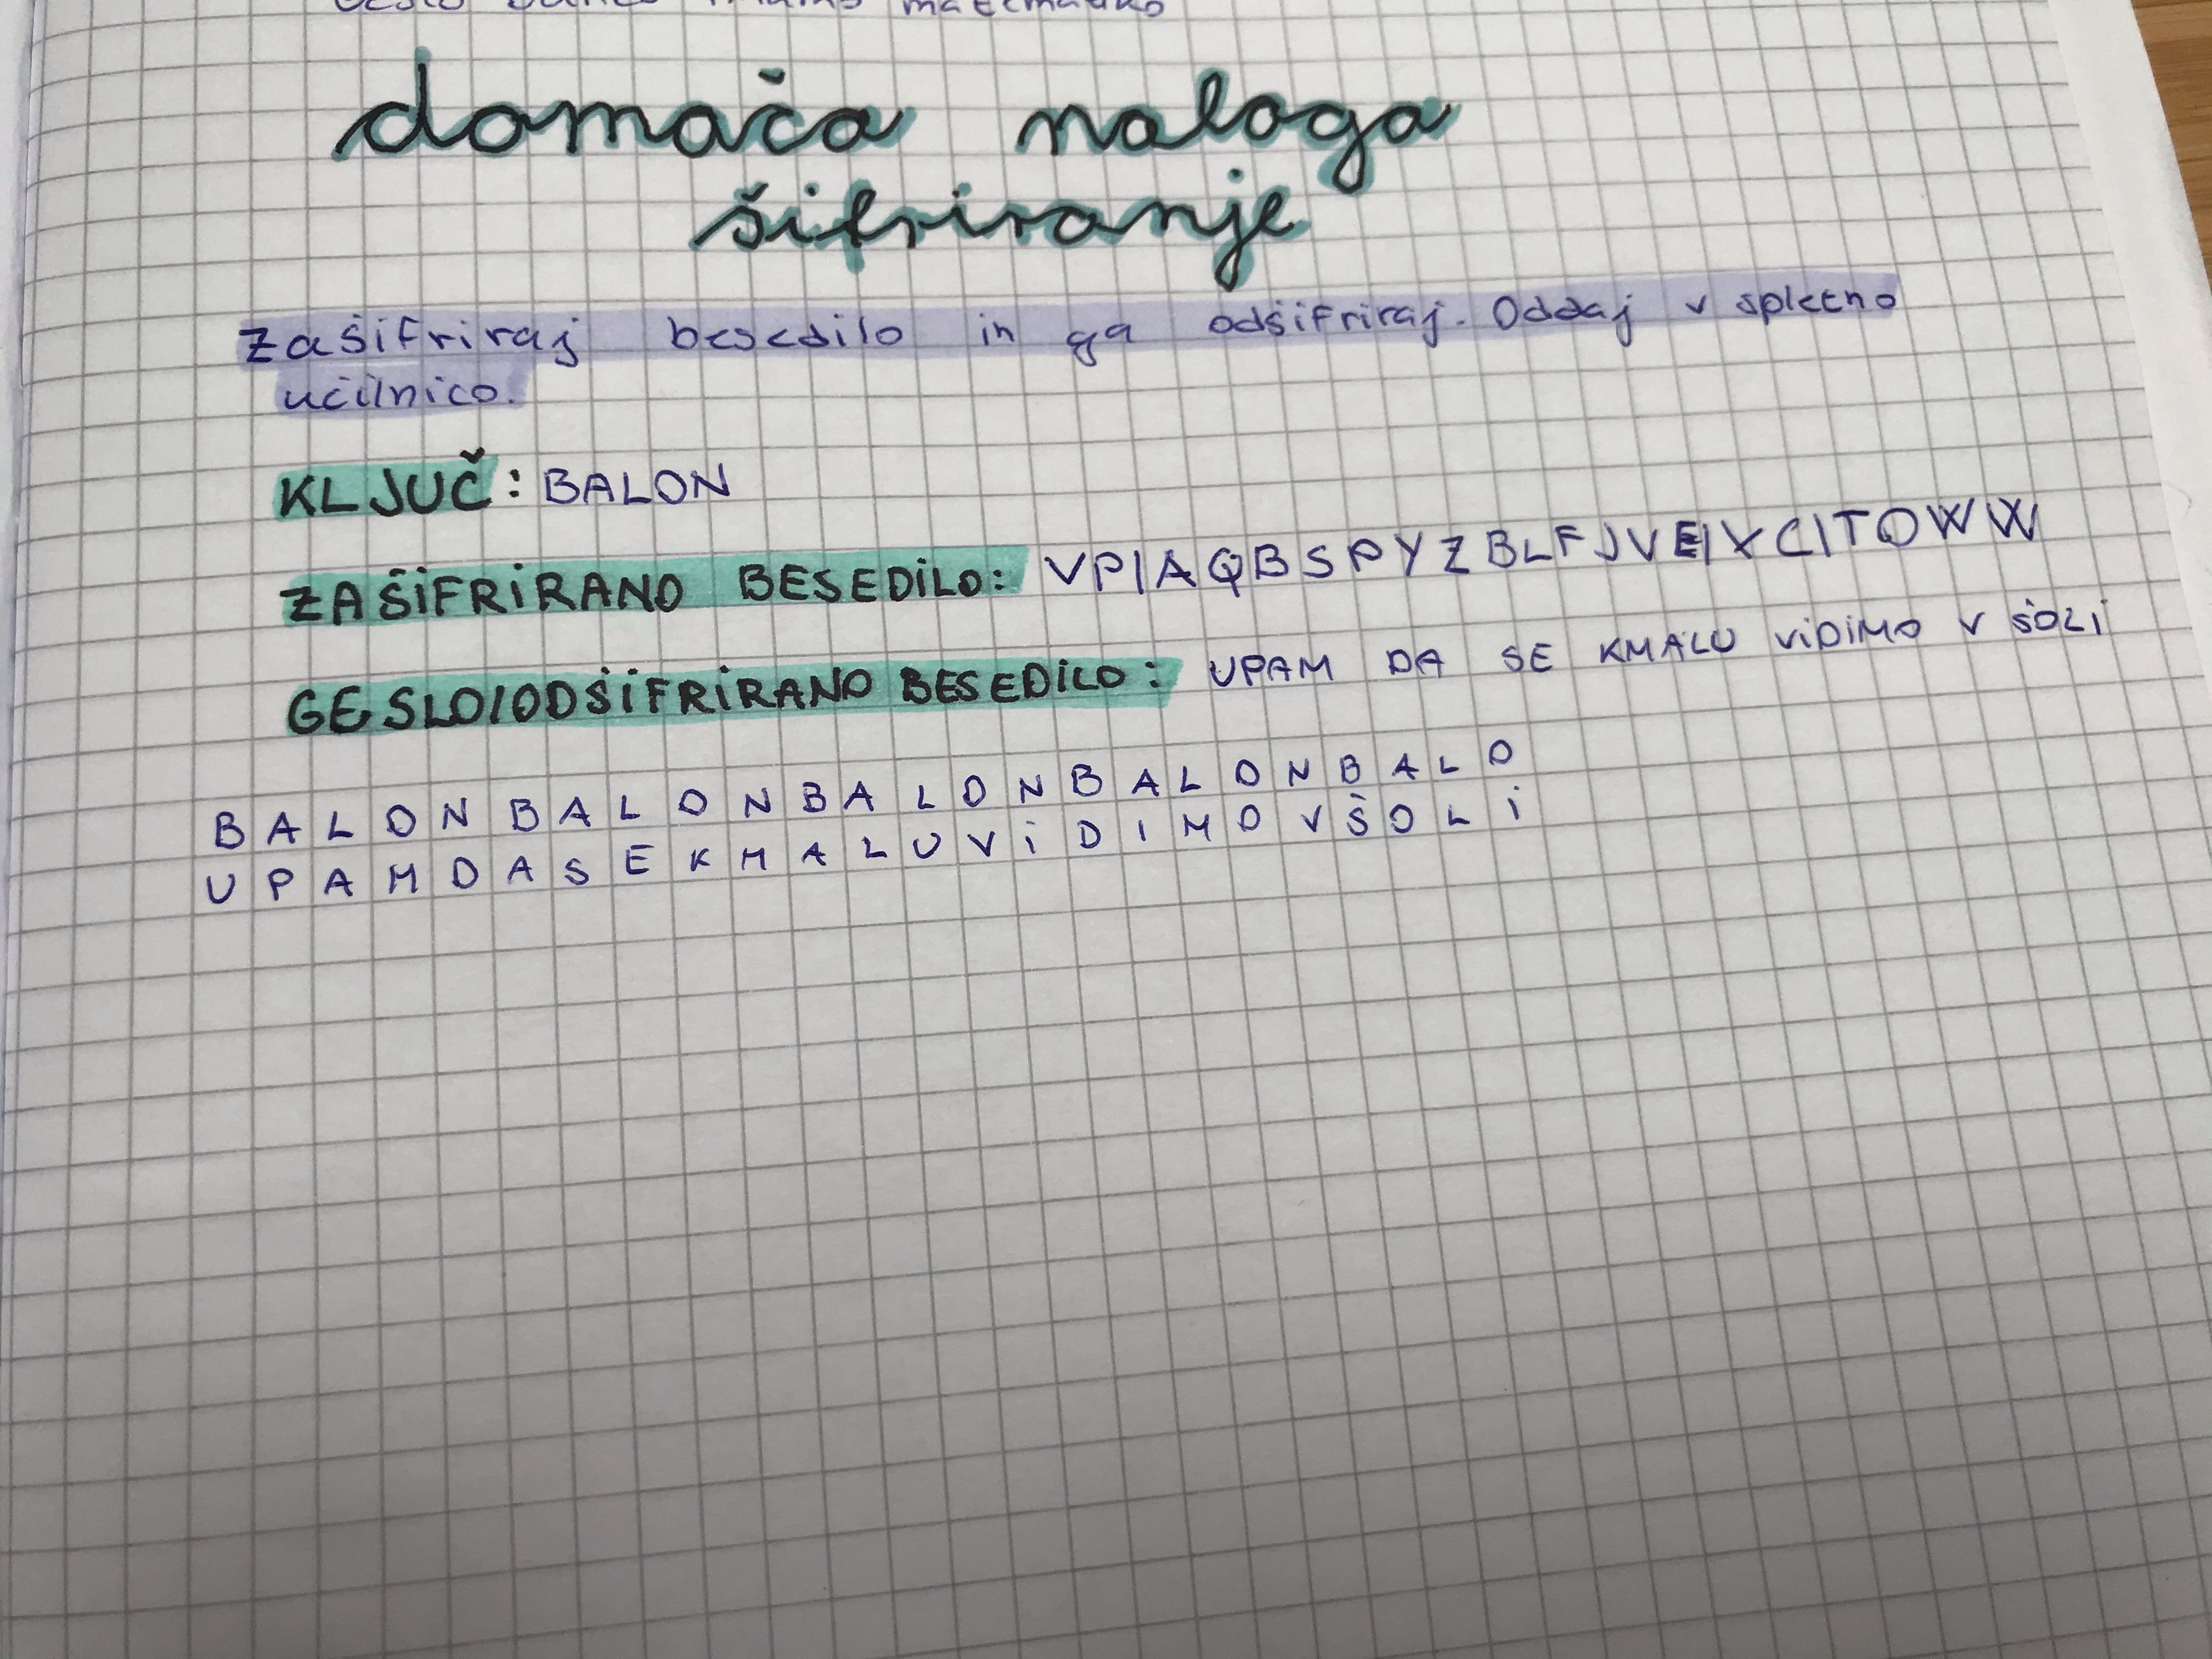 domača naloga
šifriranje
Zašifriraj besedilo in ga odšifriraj. Oddaj v spletno
učilnico.
KLJUČ: BALON
ZAŠIFRIRANO BESEDILO: VPIAQBSPYZBLFJVEIXCITOWW
GESLO/ODŠIFRIRANO BESEDILO: UPAM DA SE KMALU VIDIMO V ŠOLI
B A L O N B A L O N B A L O N B A L O N B A L O
U P A M D A S E K M A L U V I D I M O V Š O L I